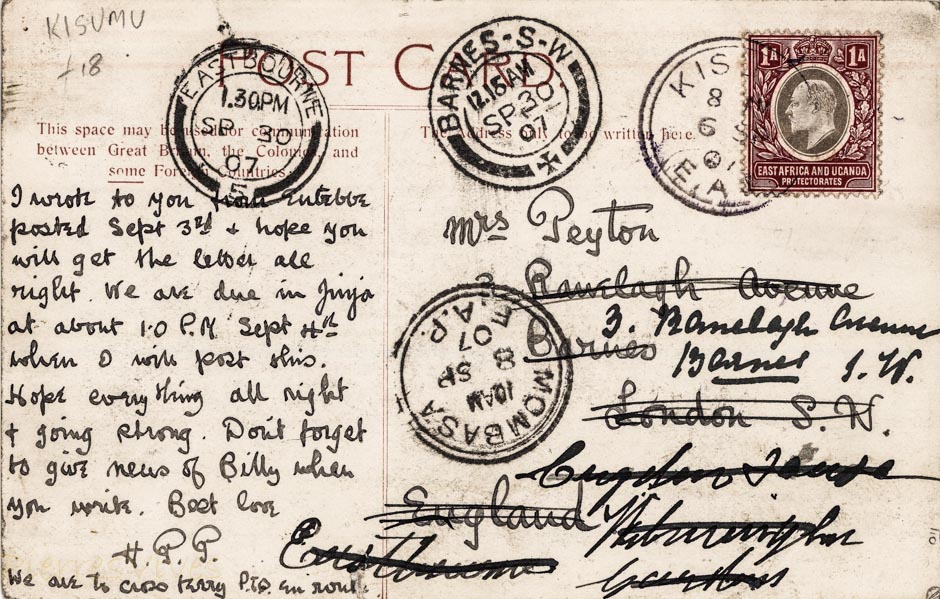 KISUMU
£18
POST CARD.
EASTBOURNE
1.30PM
SP 30
07
5
BARNES-S-W
12.15AM
SP 30
07
1A 1A
EAST AFRICA AND UGANDA
PROTECTORATES
This space may be used for communication
between Great Britain, the Colonies, and
some Foreign Countries.
The Address only to be written here.
I wrote to you from Entebbe
posted Sept 3rd & hope you
will get the letter all
right. We are due in Jinja
at about 1.0 P.M. Sept 4th
when I will post this.
Hope everything all right
& going strong. Don't forget
to give news of Billy when
you write. Best love
H.P.P.
We are to cross ferry P.T.O. En route.
Mrs Peyton
3 Ranelagh Avenue
Barnes
London S.W.
England
3. Ranelagh Avenue
Barnes S.W.
Eastbourne
Gardens
MOMBASA
10AM
8 SP
07
E.A.P.